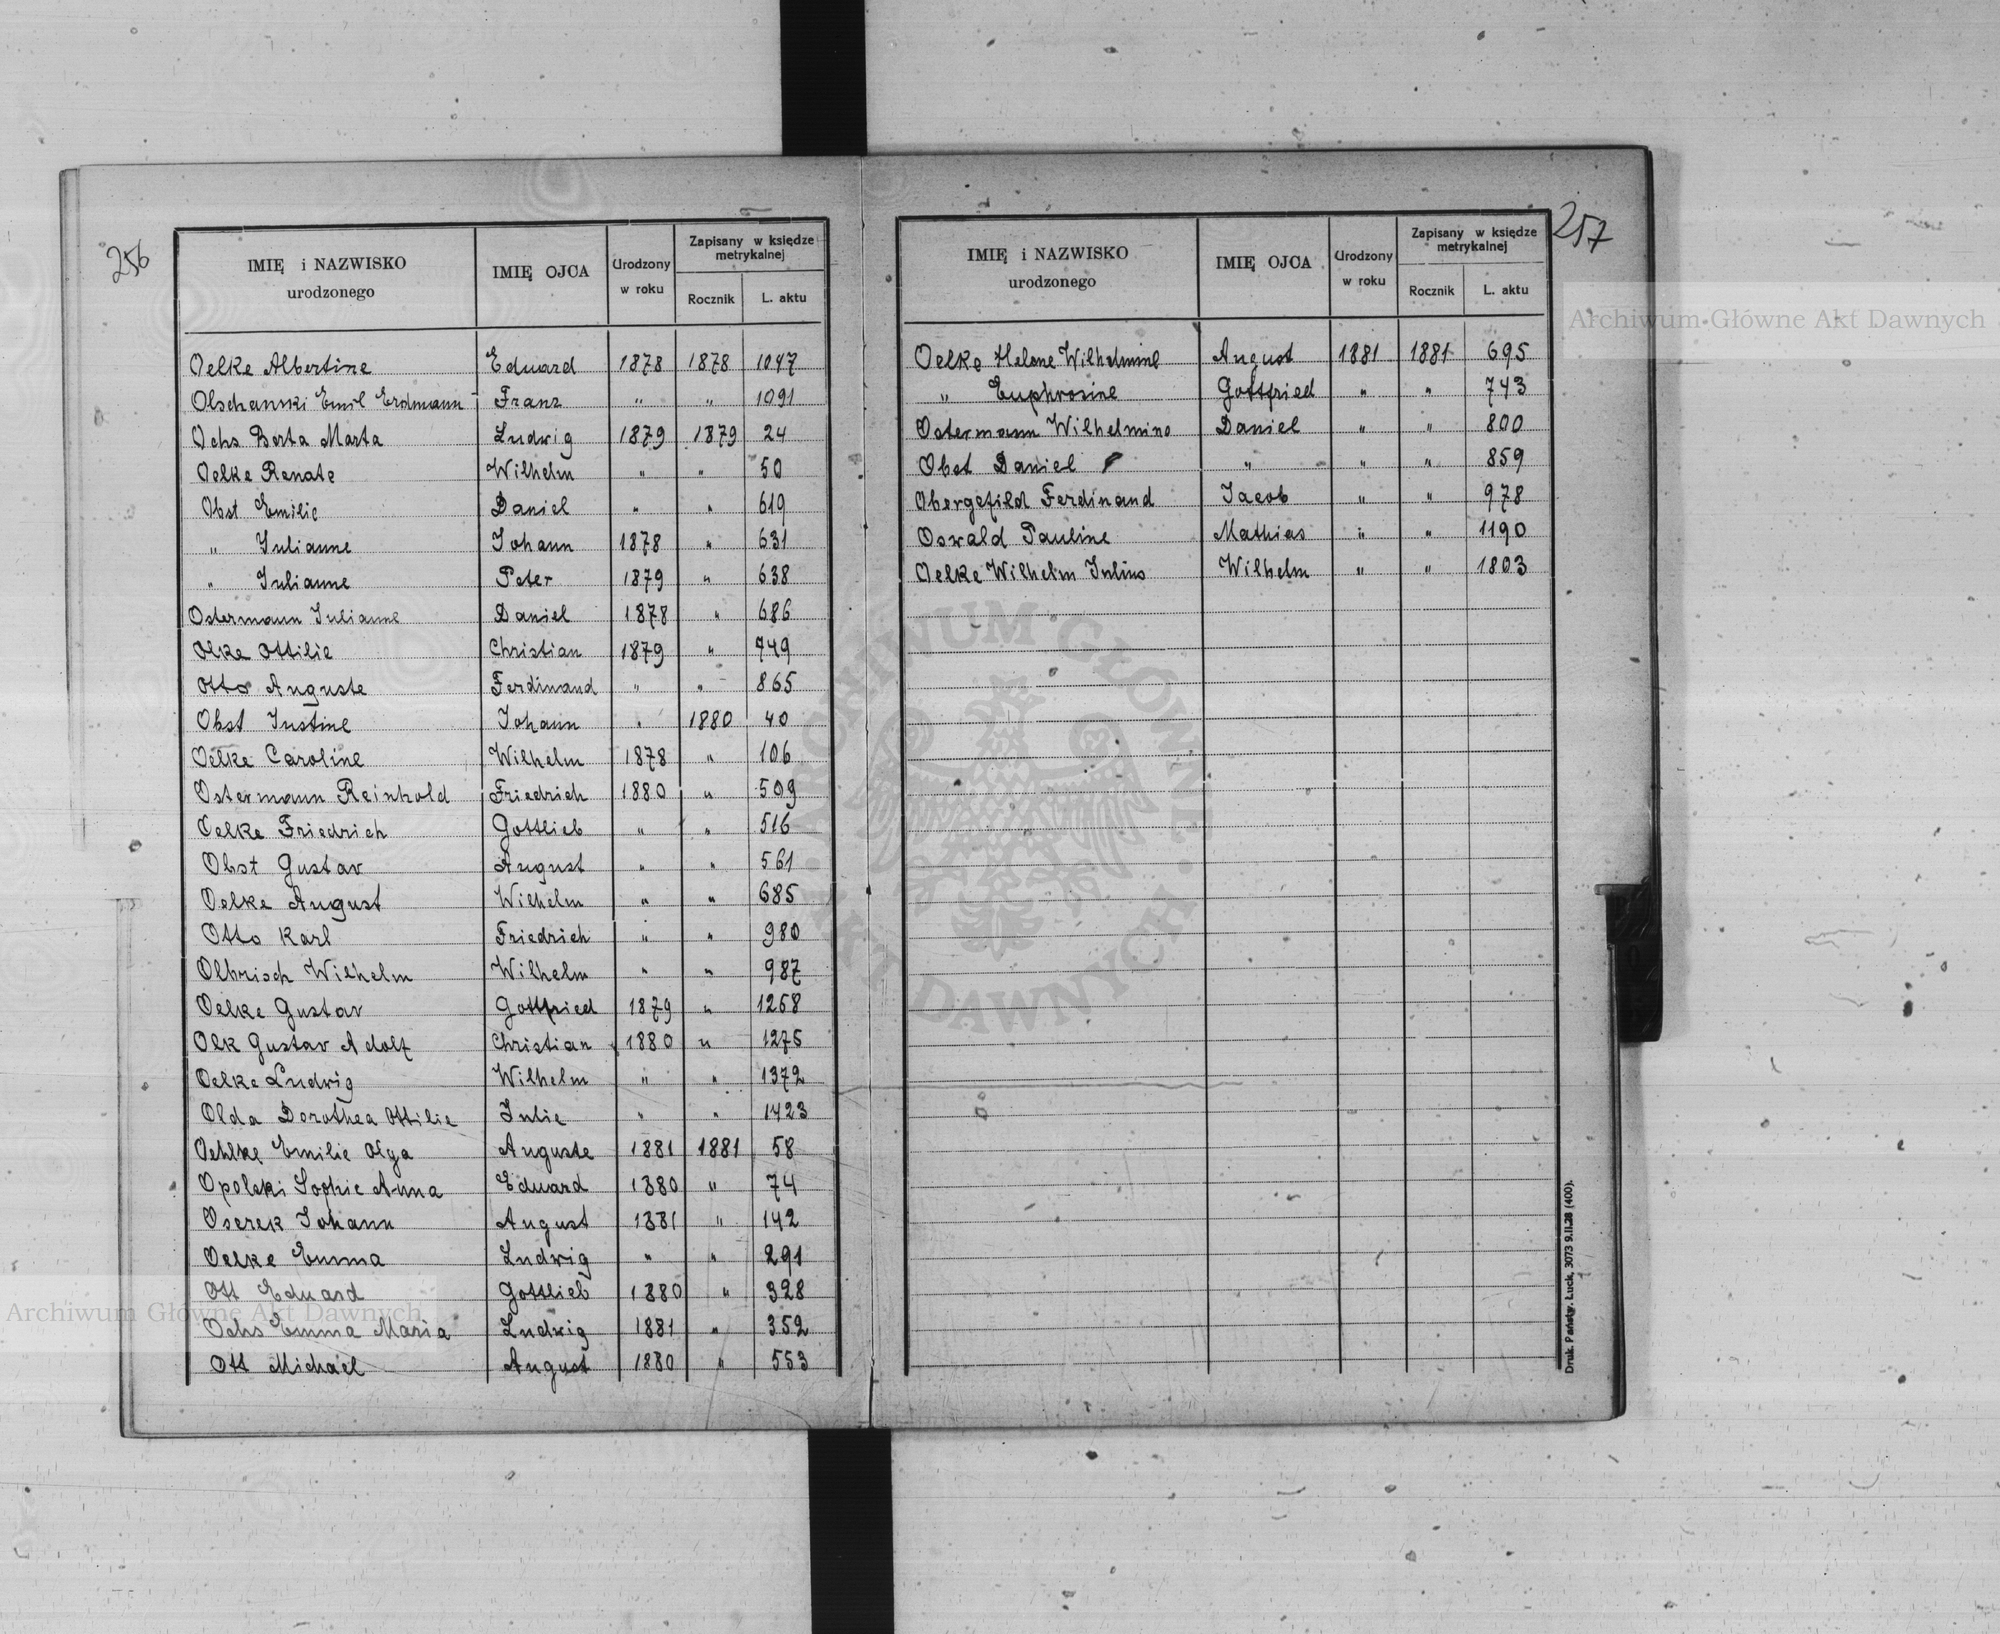 256
IMIĘ i NAZWISKO urodzonego | IMIĘ OJCA | Urodzony w roku | Zapisany w księdze metrykalnej
Rocznik | L. aktu
Oelke Albertine | Eduard | 1878 | 1878 | 1047
Olschanski Emil Erdmann | Franz | " | " | 1091
Ochs Berta Marta | Ludwig | 1879 | 1879 | 24
Oelke Renate | Wilhelm | " | " | 50
Obst Emilie | Daniel | " | " | 619
" Julianne | Johann | 1878 | " | 631
" Julianne | Peter | 1879 | " | 638
Ostermann Julianne | Daniel | 1878 | " | 686
Olke Ottilie | Christian | 1879 | " | 749
Otto Auguste | Ferdinand | " | " | 865
Obst Justine | Johann | " | 1880 | 40
Oelke Caroline | Wilhelm | 1878 | " | 106
Ostermann Reinhold | Friedrich | 1880 | " | 509
Oelke Friedrich | Gottlieb | " | " | 516
Obst Gustav | August | " | " | 561
Oelke August | Wilhelm | " | " | 685
Otto Karl | Friedrich | " | " | 980
Olbrisch Wilhelm | Wilhelm | " | " | 987
Oelke Gustav | Gottfried | 1879 | " | 1268
Olk Gustav Adolf | Christian | 1880 | " | 1275
Oelke Ludwig | Wilhelm | " | " | 1372
Olda Dorothea Ottilie | Julie | " | " | 1423
Oehlke Emilie Olga | Auguste | 1881 | 1881 | 58
Opolski Sophie Anna | Eduard | 1880 | " | 74
Oserek Johann | August | 1881 | " | 142
Oelke Emma | Ludwig | " | " | 291
Ott Eduard | Gottlieb | 1880 | " | 328
Ochs Emma Maria | Ludwig | 1881 | " | 352
Ott Michael | August | 1880 | " | 553
257
IMIĘ i NAZWISKO urodzonego | IMIĘ OJCA | Urodzony w roku | Zapisany w księdze metrykalnej
Rocznik | L. aktu
Oelke Helene Wilhelmine | August | 1881 | 1881 | 695
" Euphrosine | Gottfried | " | " | 743
Ostermann Wilhelmine | Daniel | " | " | 800
Obst Daniel | " | " | " | 859
Obergefild Ferdinand | Jacob | " | " | 978
Oswald Pauline | Mathias | " | " | 1190
Oelke Wilhelm Julius | Wilhelm | " | " | 1803
Druk. Państw. Łuck, 3073 9.II.28 (400).
Archiwum Główne Akt Dawnych
Archiwum Główne Akt Dawnych
ARCHIWUM GŁÓWNE · AKT DAWNYCH ·